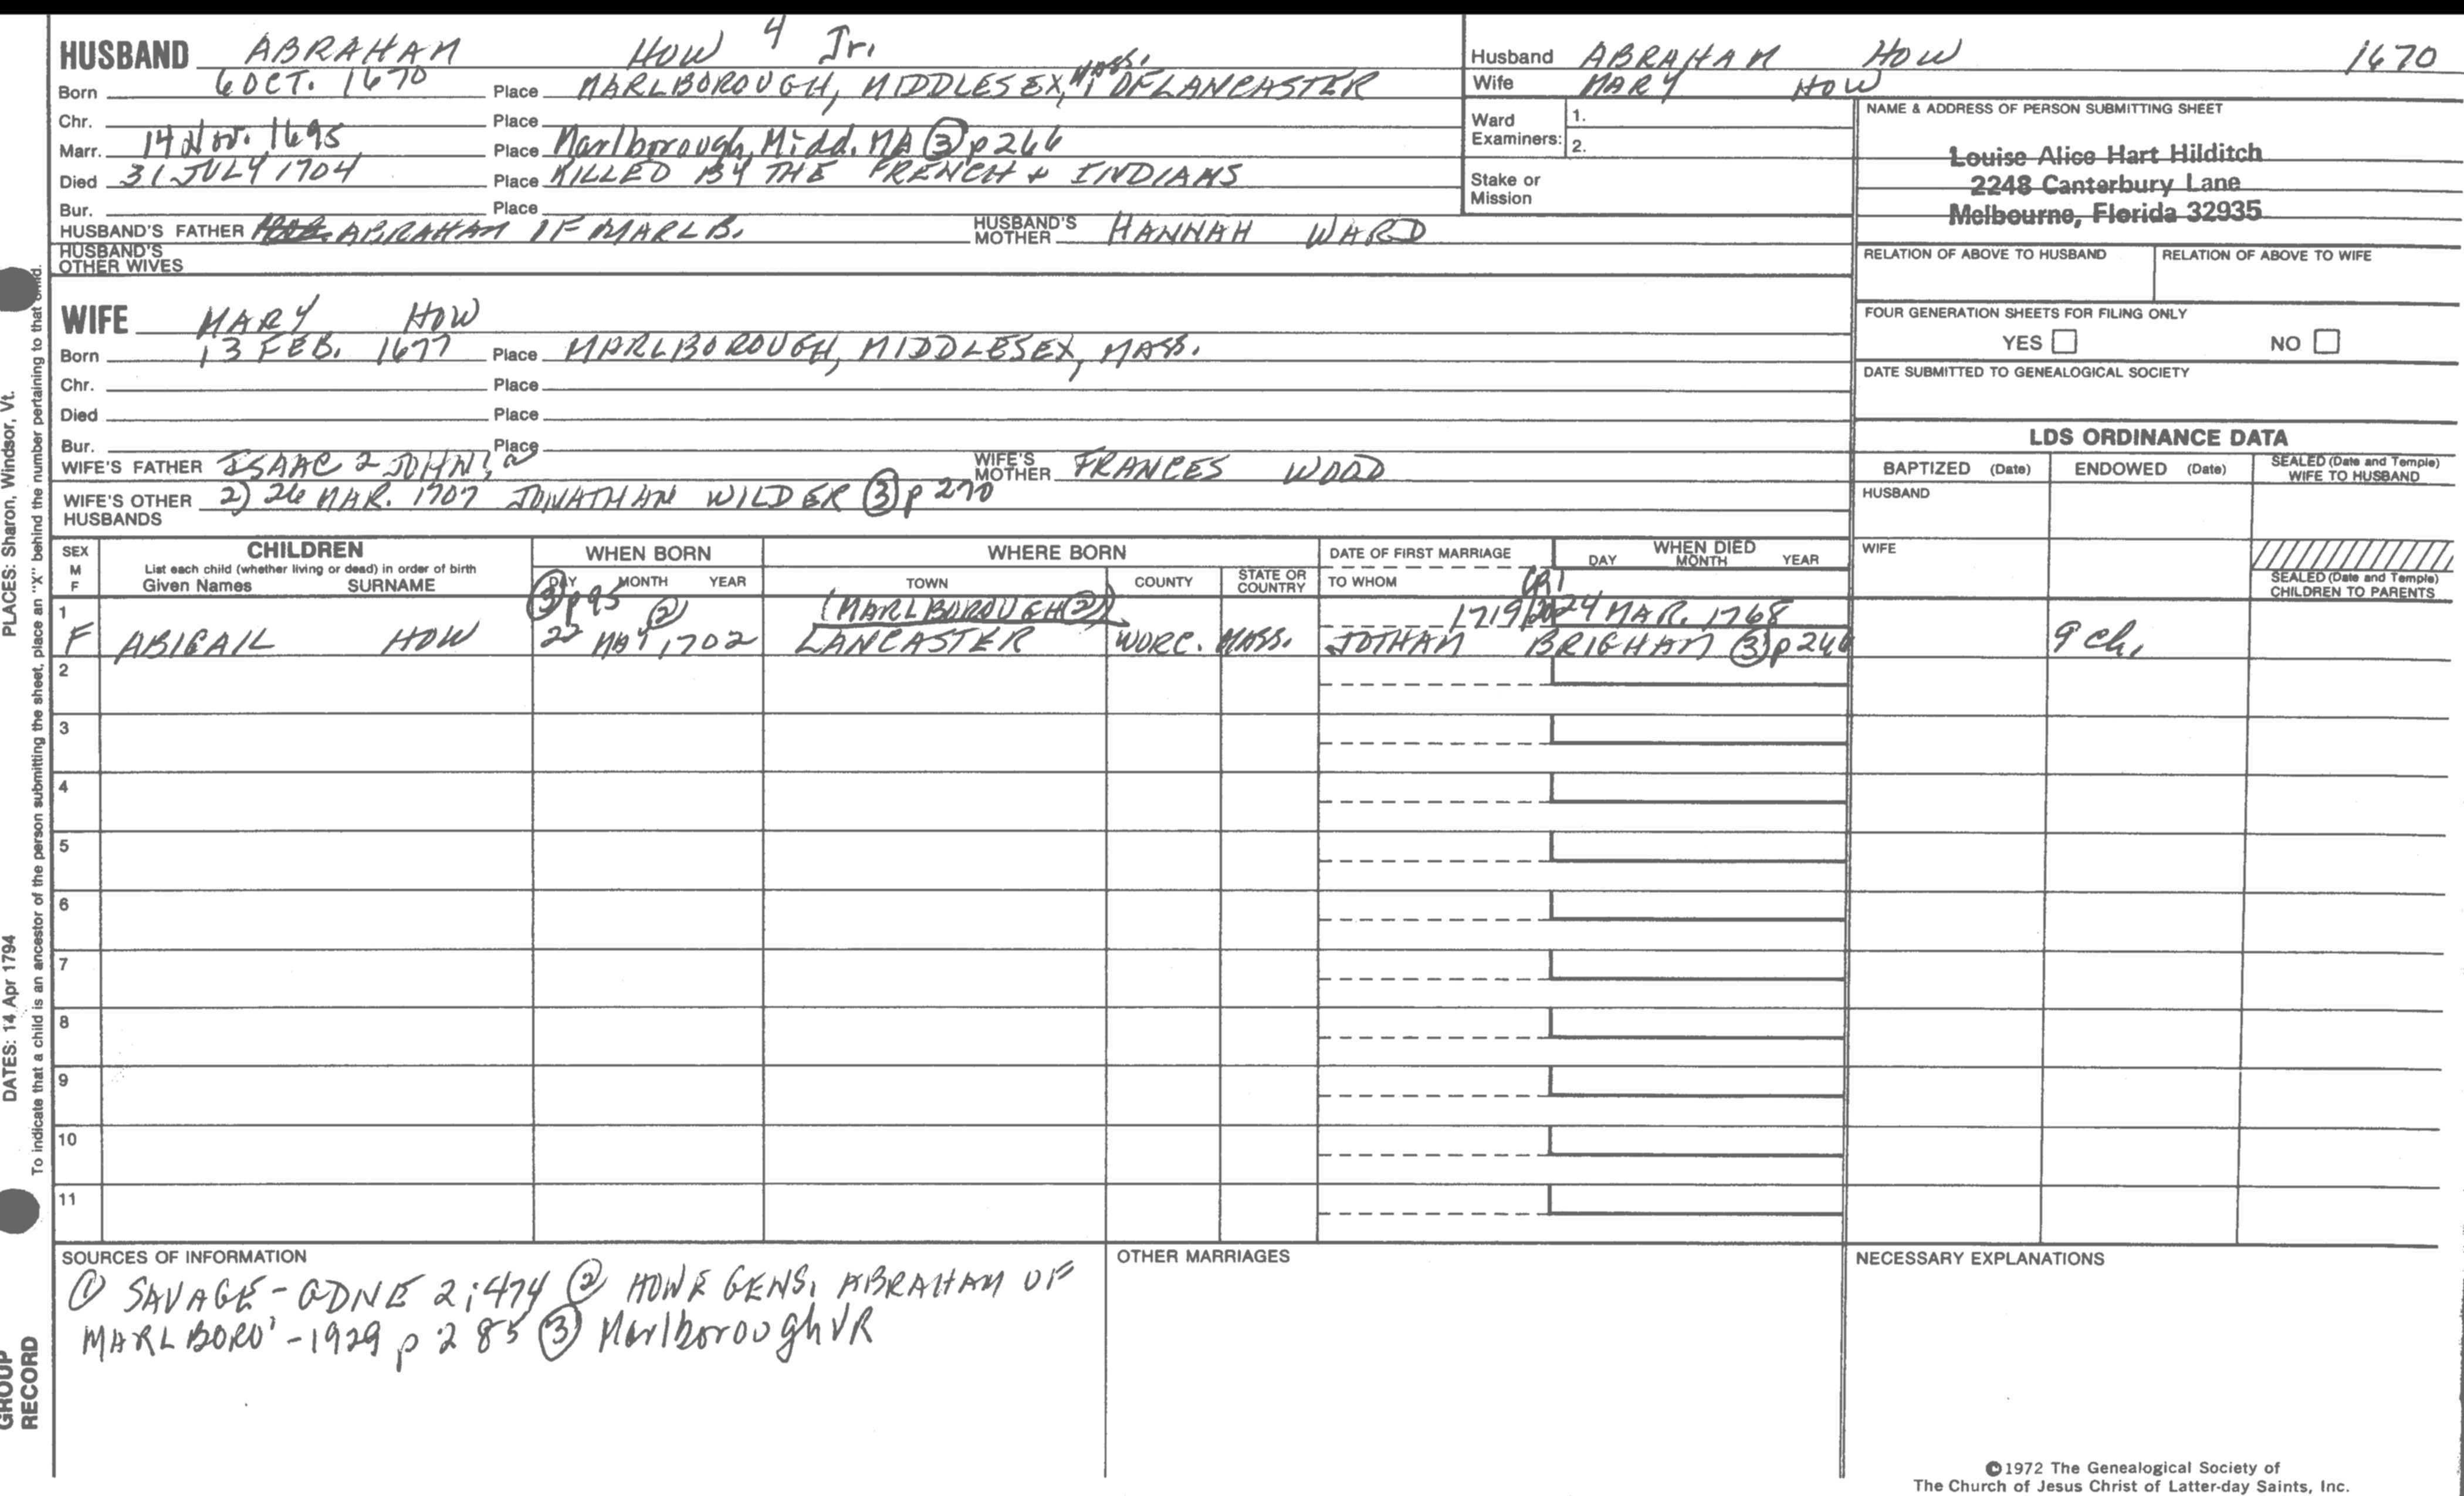 HUSBAND ABRAHAM HOW 4 Jr.
Born 6 OCT. 1670 Place MARLBOROUGH, MIDDLESEX, MASS. OF LANCASTER
Chr. Place
Marr. 14 Nov. 1695 Place Marlborough, Midd. MA ③ p266
Died 31 JULY 1704 Place KILLED BY THE FRENCH & INDIANS
Bur. Place
HUSBAND'S FATHER ABRAHAM OF MARLB. HUSBAND'S MOTHER HANNAH WARD
HUSBAND'S OTHER WIVES
Husband ABRAHAM HOW 1670
Wife MARY HOW
Ward Examiners: 1.
2.
Stake or Mission
NAME & ADDRESS OF PERSON SUBMITTING SHEET
Louise Alice Hart Hilditch
2248 Canterbury Lane
Melbourne, Florida 32935
RELATION OF ABOVE TO HUSBAND RELATION OF ABOVE TO WIFE
FOUR GENERATION SHEETS FOR FILING ONLY
YES NO
DATE SUBMITTED TO GENEALOGICAL SOCIETY
WIFE MARY HOW
Born 13 FEB. 1677 Place MARLBOROUGH, MIDDLESEX, MASS.
Chr. Place
Died Place
Bur. Place
WIFE'S FATHER ISAAC 2 JOHN 1 WIFE'S MOTHER FRANCES WOOD
WIFE'S OTHER HUSBANDS 2) 26 MAR. 1707 JONATHAN WILDER ③ p 270
LDS ORDINANCE DATA
BAPTIZED (Date) ENDOWED (Date) SEALED (Date and Temple) WIFE TO HUSBAND
HUSBAND
WIFE
SEALED (Date and Temple) CHILDREN TO PARENTS
SEX M F CHILDREN List each child (whether living or dead) in order of birth Given Names SURNAME
WHEN BORN DAY MONTH YEAR
WHERE BORN TOWN COUNTY STATE OR COUNTRY
DATE OF FIRST MARRIAGE TO WHOM
WHEN DIED DAY MONTH YEAR
1 ③ p95 ② (MARLBOROUGH ②) 1719/20 24 MAR. 1768
F ABIGAIL HOW 22 MAY 1702 LANCASTER WORC. MASS. JOTHAM BRIGHAM ③ p246 9 ch.
2
3
4
5
6
7
8
9
10
11
SOURCES OF INFORMATION
① SAVAGE - GDNE 2:474 ② HOWE GENS. ABRAHAM OF
MARLBORO' - 1929 p 285 ③ Marlborough VR
OTHER MARRIAGES
NECESSARY EXPLANATIONS
©1972 The Genealogical Society of
The Church of Jesus Christ of Latter-day Saints, Inc.
PLACES: Sharon, Windsor, Vt.
DATES: 14 Apr 1794
To indicate that a child is an ancestor of the person submitting the sheet, place an "X" behind the number pertaining to that child.
GROUP
RECORD